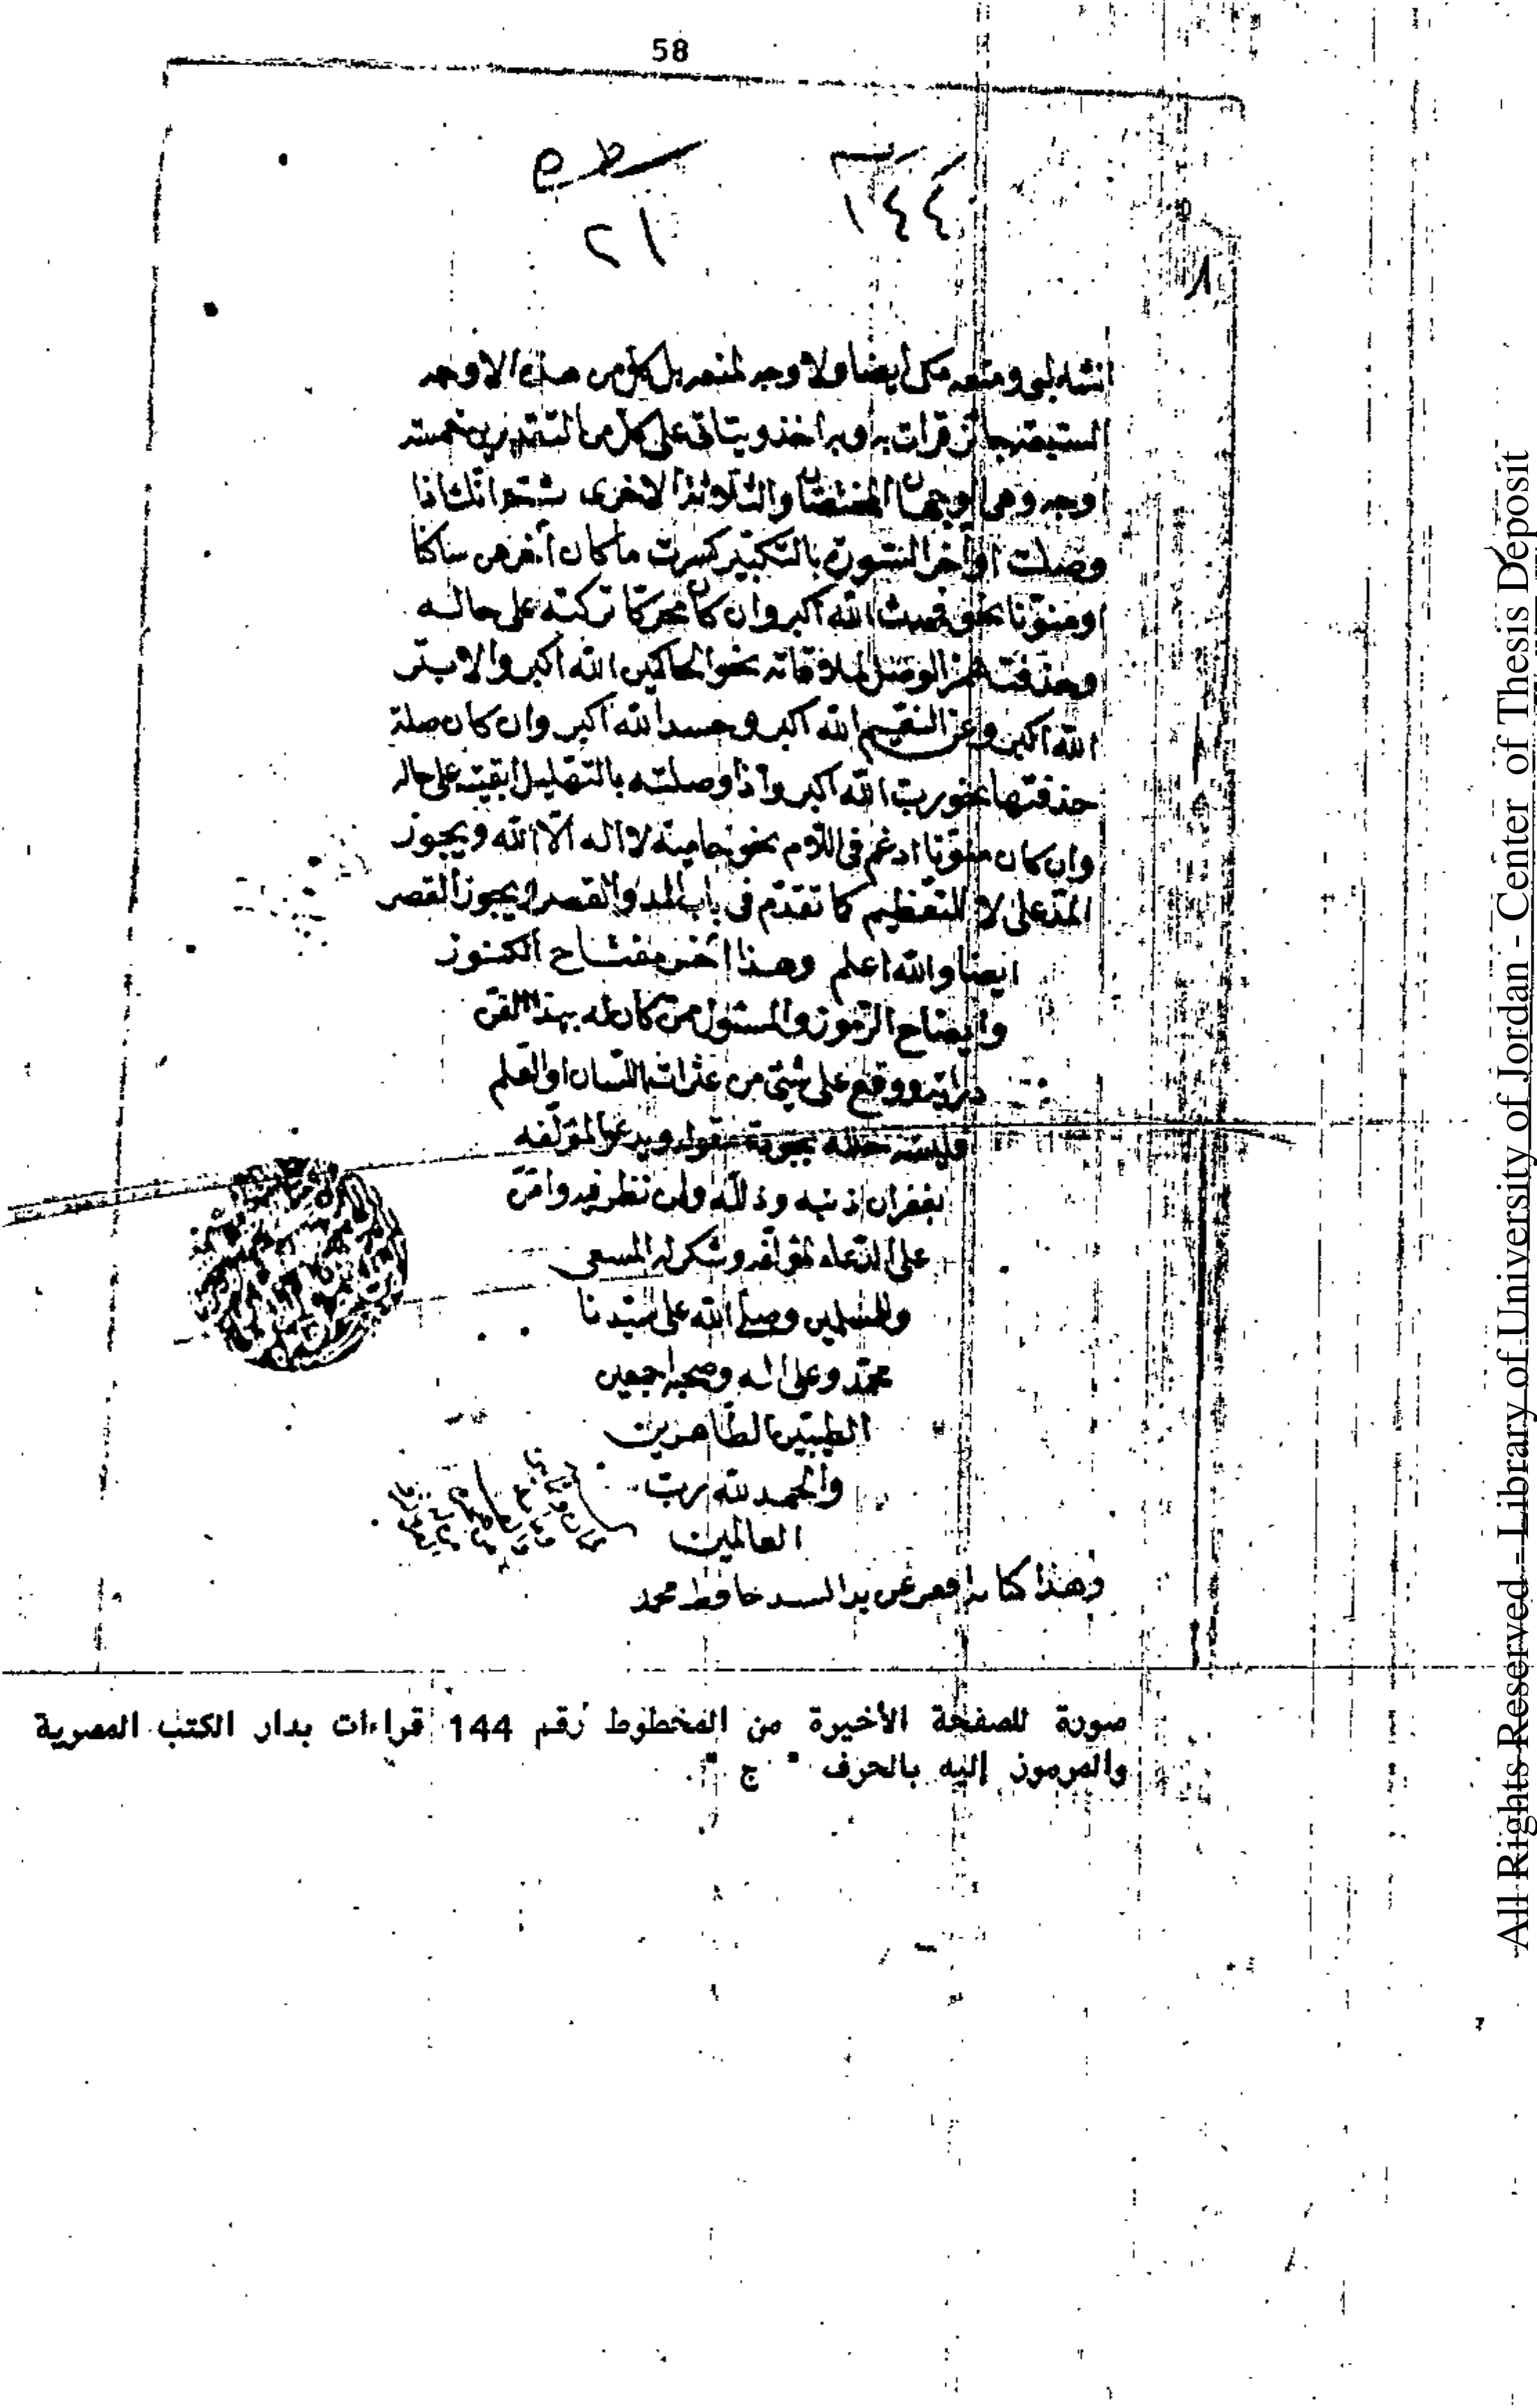 58
١٤٤
٢١
ومنعه مكى أيضا ولا وجه لمنعه بل كل من هذه الاوجه
جائز قرات به وبه اخذ ويتاتى على كل من التقديرين خمسة
اوجه وهى الوجهان المختصان والثلاثة الاخرى ثم انك اذا
وصلت اواخر السورة بالتكبير كسرت ما كان آخرهن ساكنا
ومنونا نحو فحدث الله اكبر وان كان محركا تركته على حاله
وحذفت همز الوصل لملاقاته نحو الحاكمين الله اكبر والابتر
الله اكبر وعن النعيم الله اكبر وحسد الله اكبر وان كان صلة
حذفتها نحو ربه الله اكبر واذا وصلته بالتهليل ابقيته على حاله
وان كان منونا ادغم فى اللام نحو حامية لا اله الا الله ويجوز
المد على لا للتعظيم كما تقدم فى باب المد والقصر ويجوز القصر
ايضا والله اعلم وهذا آخر مفتاح الكنوز
وايضاح الرموز والمسئول ممن كان له بهذا الفن
دراية ووقع على شئ من عثرات اللسان او القلم
ويدعو لمؤلفه
بغفران ذنبه وزلله ولمن نظر فيه وامن
على الدعاء لمؤلفه وشكر له المسعى
وللمسلمين وصلى الله على سيدنا
محمد وعلى اله وصحبه اجمعين
الطيبين الطاهرين
والحمد لله رب
العالمين
وهذا كتابه افقر عن يد السيد حافظ محمد
صورة للصفحة الأخيرة من المخطوط رقم 144 قراءات بدار الكتب المصرية
والمرموز إليه بالحرف " ج ".
All Rights Reserved - Library of University of Jordan - Center of Thesis Deposit